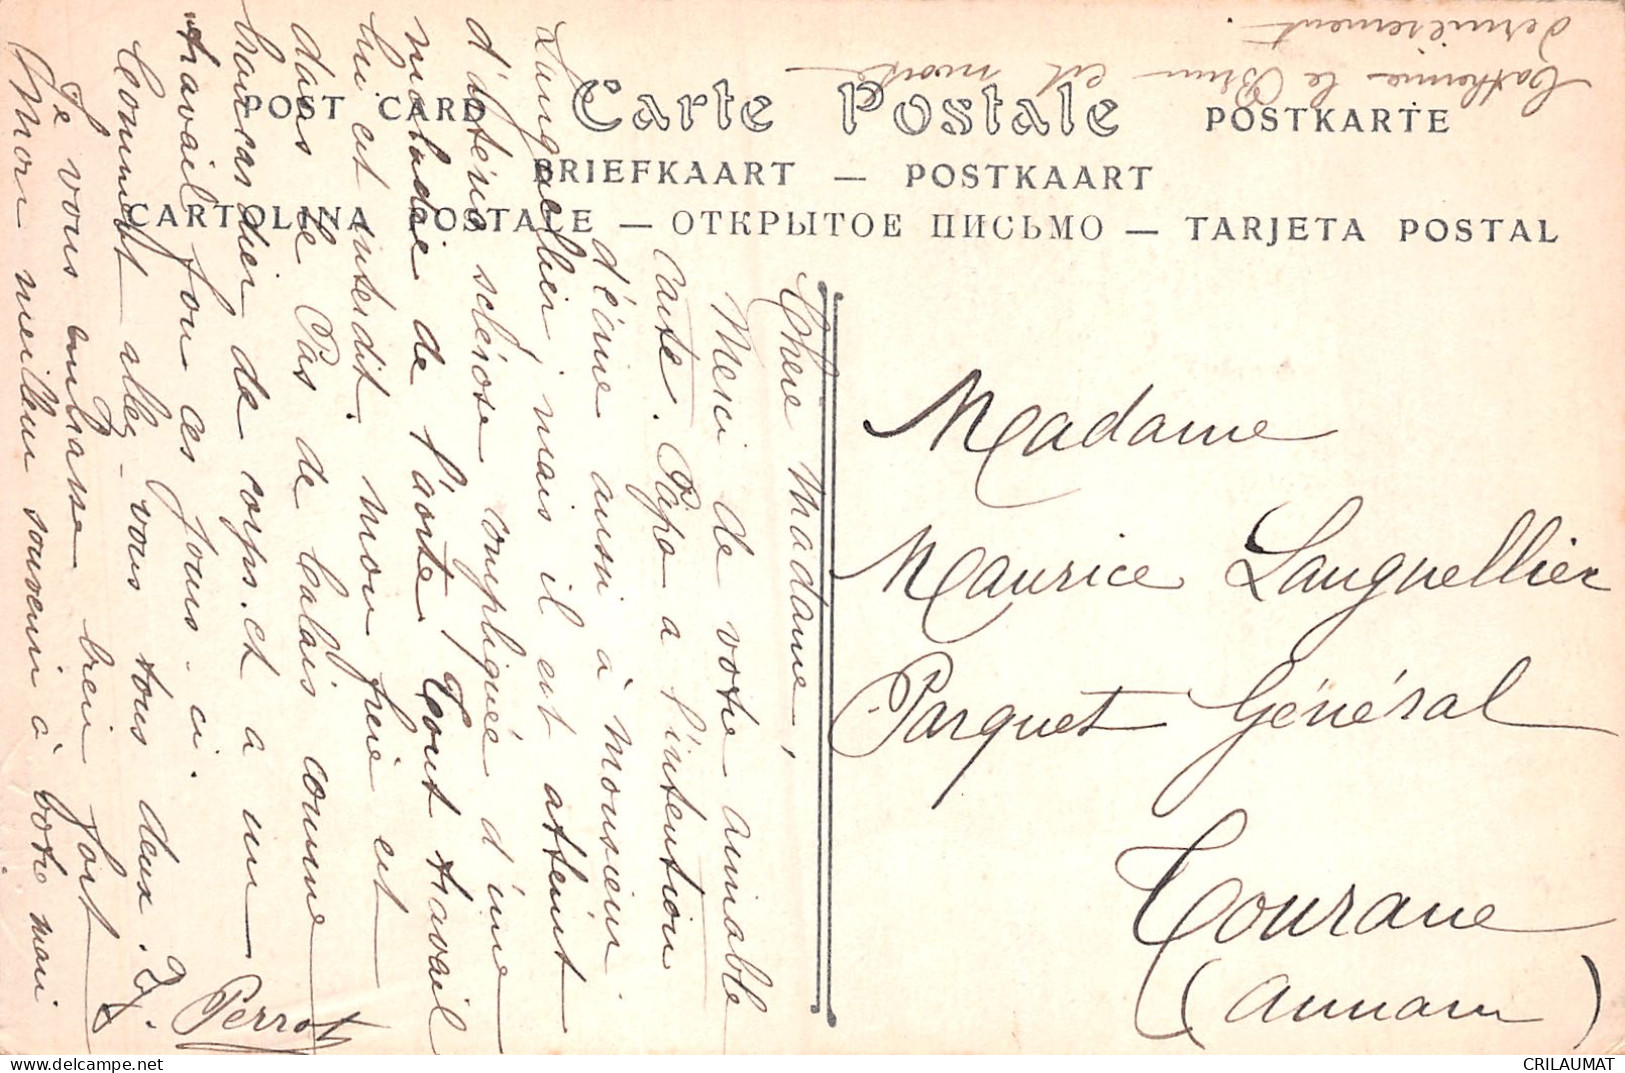 POST CARD Carte Postale POSTKARTE
BRIEFKAART — POSTKAART
CARTOLINA POSTALE — ОТКРЫТОЕ ПИСЬМО — TARJETA POSTAL
Chere Madame,
Merci de votre aimable
carte. Papa a l'intention
d'écrire aussi à monsieur
Languellier, mais il est atteint
d'artério sclérose compliquée d'une
maladie de l'aorte. Tout travail
lui est interdit. mon frère est
dans le Pas de Calais comme
brancardier de corps. et a un
travail fou ces jours-ci.
Comment allez-vous tous deux.
Je vous embrasse bien fort
Mon meilleur souvenir à votre mari
Y. Perrot
Catherine le Brun est morte
dernièrement.
Madame
Maurice Languellier
Parquet Général
Tourane
(Annam)
CRILAUMAT